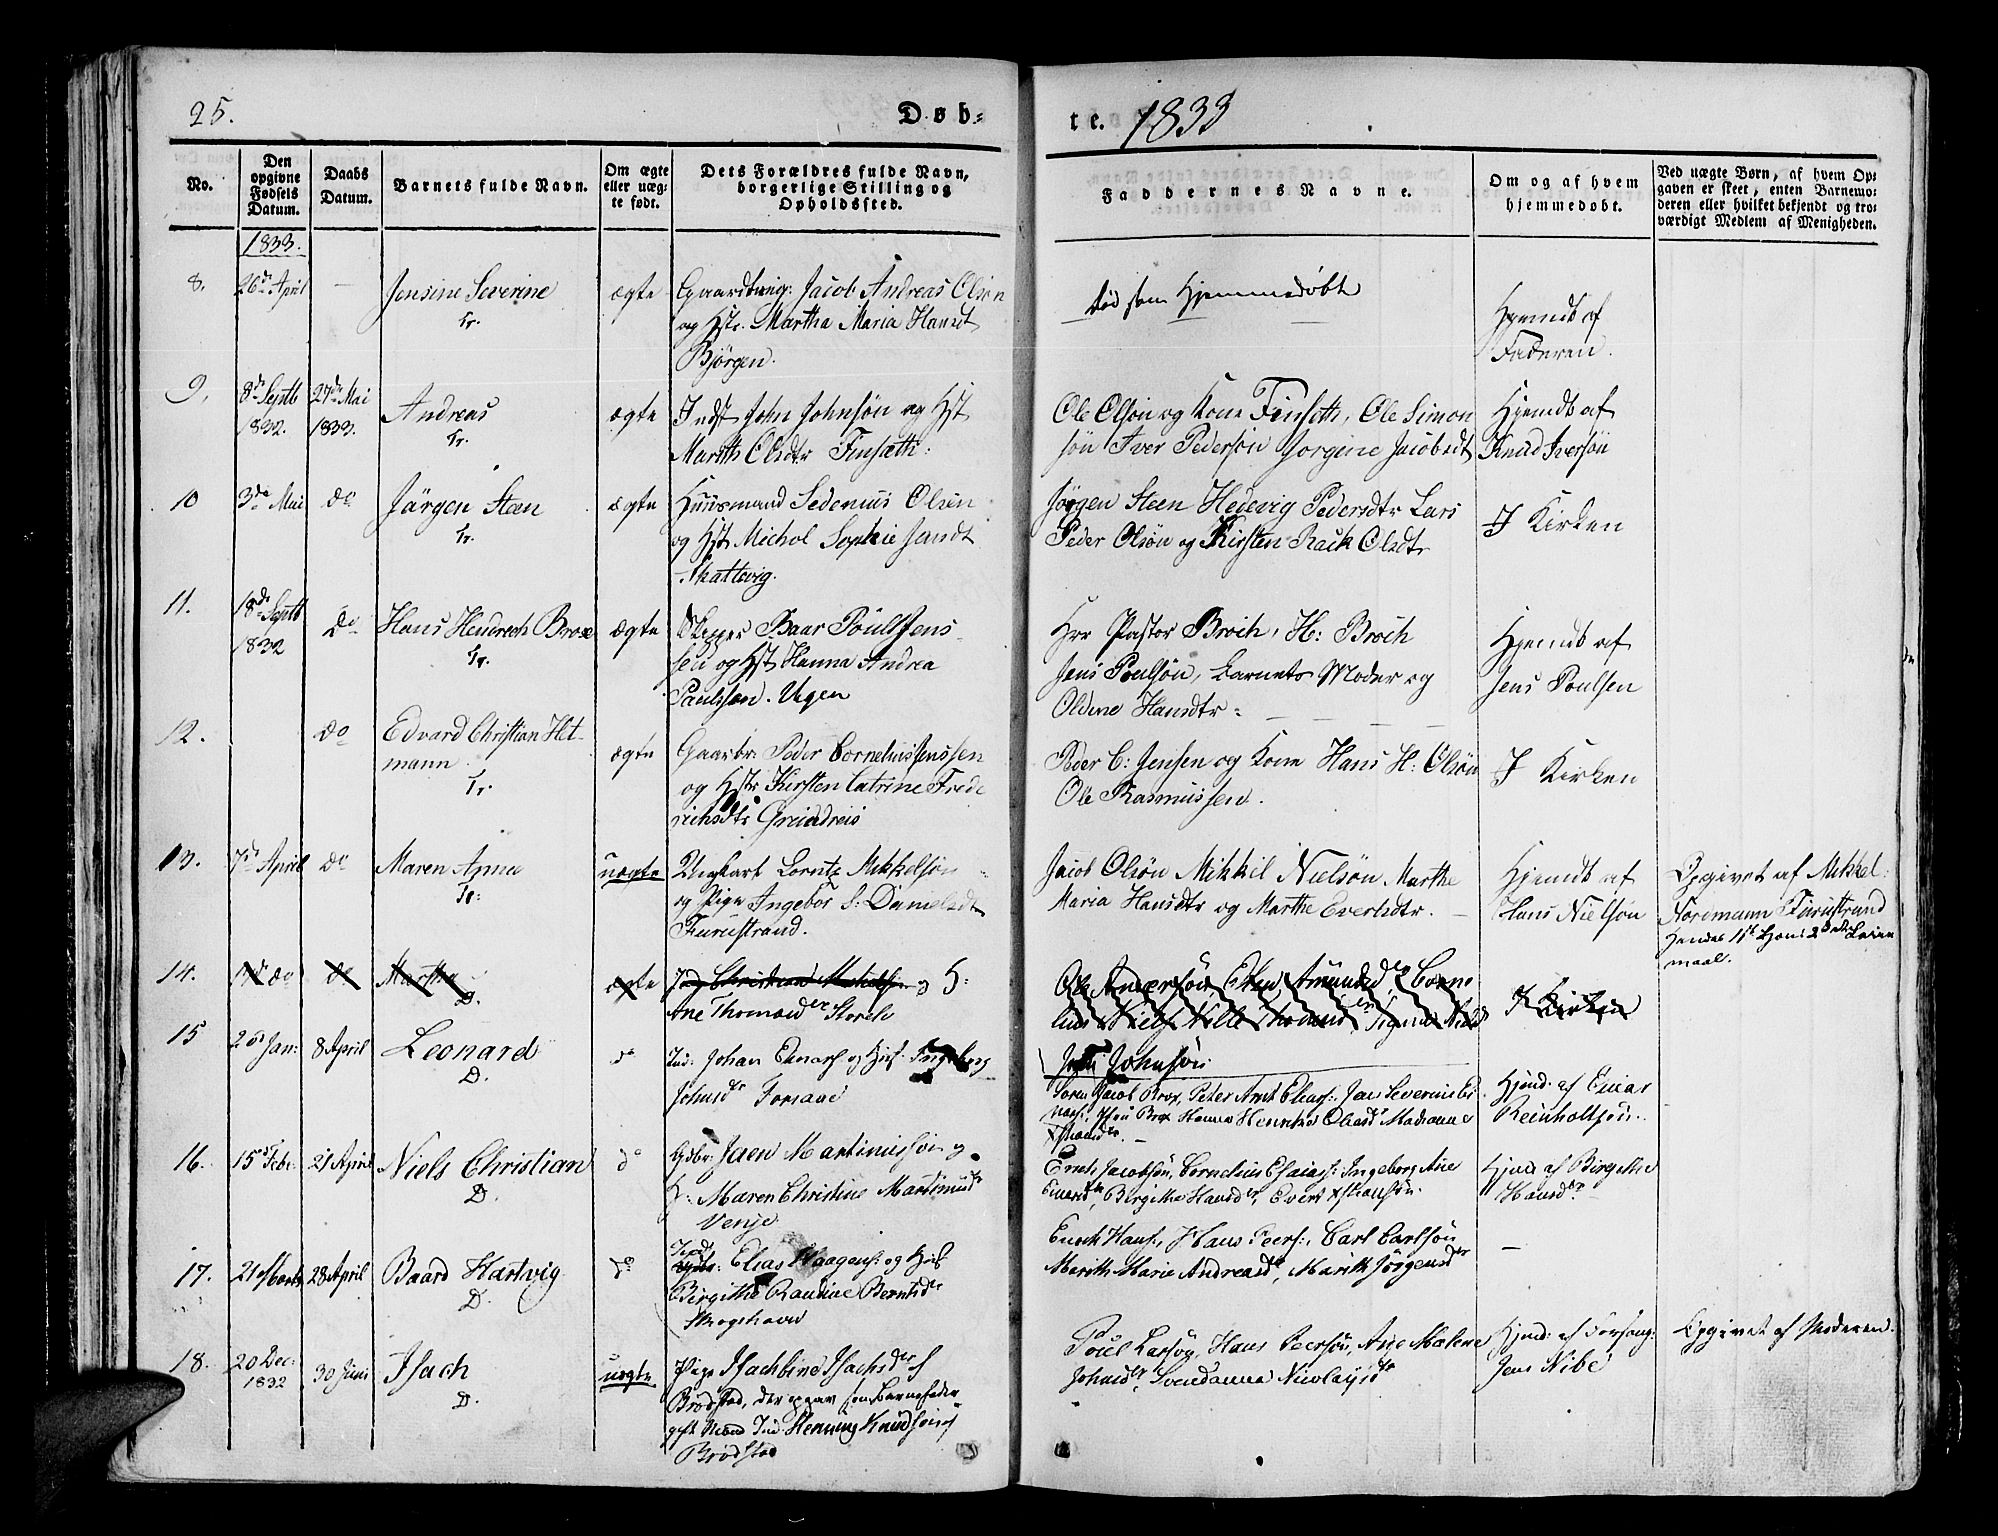 25.
Døb-
te. 1833
No.
Den
opgivne
Fødsels
Datum.
Daabs
Datum.
Barnets fulde Navn.
Om ægte
eller uæg-
te født.
Dets Forældres fulde Navn,
borgerlige Stilling og
Opholdssted.
Faddernes Navne.
Om og af hvem
hjemmedøbt.
Ved uægte Børn, af hvem Op-
gaven er skeet, enten Barnemo-
deren eller hvilket bekjendt og tro-
værdigt Medlem af Menigheden.
1833.
8.
26de April
—
Jensine Severine
Tr.
ægte
Gaardbrug: Jacob Andreas Olsøn
og Hstr. Martha Maria Hansdt
Bjørgen.
død som Hjemmedøbt
Hjemdt af
Faderen.
9.
8de Septb
1832.
27de Mai
1833.
Andreas
Tr.
ægte
Indst John Johnsøn og Hst
Marith Olsdtr Finsæth.
Ole Olsøn og Kone Finseth, Ole Simon
søn Iver Pedersøn Jorgine Jacobsdt
Hjemdt af
Knud Iversøn
10
3de Mai
do
Jürgen Steen
Tr.
ægte
Huusmand Sedenius Olsen
og Hst Michol Sophie Jensdt
Skattevig.
Jørgen Steen Hedevig Pedersdtr Lars
Peder Olsøn og Kirsten Rack Olsdt
I Kirken
11.
18de Septb
1832
Do
Hans Hendrech Brose
Tr.
ægte
Skipper Baar Poul Jens
sen og Hst Hanna Andrea
Paulssen. Ugen
Hrr Pastor Broch, H: Broch
Jens Poulsøn, Barnets Moder og
Oldene Hansdtr
Hjemdt af
Jens Poulsen
12.
do
Edvard Christian Het-
mann
Tr.
ægte
Gaarbr: Peder Cornelius Jenssen
og Hstr Kirsten Catrine Frede
richsdtr
Peder C: Jensen og Kone Hans H: Olsøn
Ole Rasmussen.
I Kirken
13.
7de April
do
Maren Anne
Tr:
uægte
Ungkarl Lorntz Mikkelsøn
og Pige Ingebor S: Danielsdt
Furustrand.
Jacob Olsøn Mikkel Nielsøn Marthe
Maria Hansdtr og Marthe Evertsdtr.
Hjemdt af
Hans Nielsøn
Opgivet af Mikkel
Nordmann Furustrand
Hendes 1ste Hans 2det Leier
maal.
14.
do
do
Martha
D.
ægte
Christian og H:
Ane Thomasder Storch
Ole Andersøn, Amundsder Corne
lius
I Kirken
15
Jan:
8 April
Leonard
D.
do
Ind: Johan og Hust: Ingeborg
Johnsdr Forsaae
Johnsøn
Søren Jacob Brox, Peter Arnt Eliass: Jan Severin Ei
Hanna Henrike Olsdr Marianne
Hjemd: af Einar
Reinholtsøn.
16.
15 Febr.
21 April
Niels Christian
D.
do
Gdbr: Jaen Martinussøn og
H: Maren Christine Martinusdr
Venje
Ernts Jacobsøn, Cornelius Esaiass: Ingeborg Ane
Einersdtr, Birgithe Hansder, Evert Xstiansøn.
Hjemd af Birgithe
Hansder
17.
21 Marts
28 April
Baard Hartvig
D.
do
Inds
Elias Haagens: og Hust
Birgithe Raudine Berntsdr
Skogshavn
Enoch Hans:, Hans Peers:, Carl Carlsøn
Marith Marie Andreasdr, Marith Jørgensder
—
18.
20 Dec:
1832
30 Juni
Isach
D.
uægte
Pige Isachbine Isachsder
Brødstad, der opgav som Barnefader
gift Mand Ind: Henning Knudsøn
Brødstad
Poul Larsøn, Hans Peersøn, Ane Malene
Johnsdr, Svendanna Nicolaysdr
Hjemd: af Forsang:
Jens Nibe
Opgivet af Moderen.